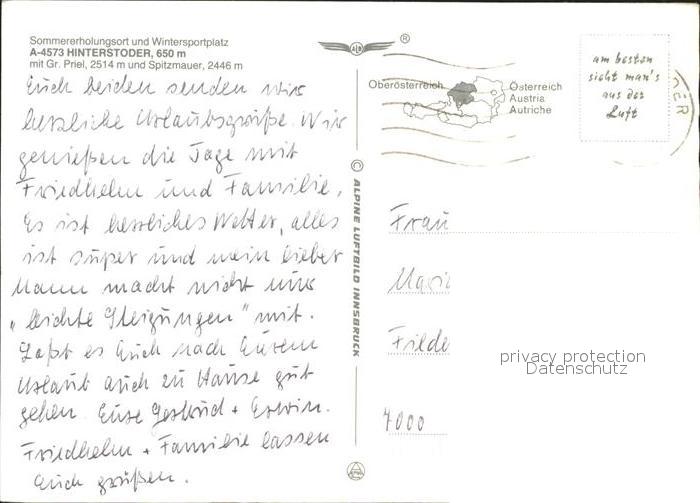 Sommererholungsort und Wintersportplatz
A-4573 HINTERSTODER, 650 m
mit Gr. Priel, 2514 m und Spitzmauer, 2446 m
Euch beiden senden wir
herzliche Urlaubsgrüße. Wir
genießen die Tage mit
Friedhelm und Familie,
Es ist herrliches Wetter, alles
ist super und mein lieber
Mann macht nicht nur
„leichte Steigungen" mit.
Laßt es Euch nach Eurem
Urlaub auch zu Hause gut
gehen. Eure Gertrud + Erwin.
Friedhelm + Familie lassen
Euch grüßen.
ALB
®
Oberösterreich
Österreich
Austria
Autriche
am besten
sieht man's
aus der
Luft
DER
© ALPINE LUFTBILD INNSBRUCK
Frau
Mari
Filde
privacy protection
Datenschutz
4000